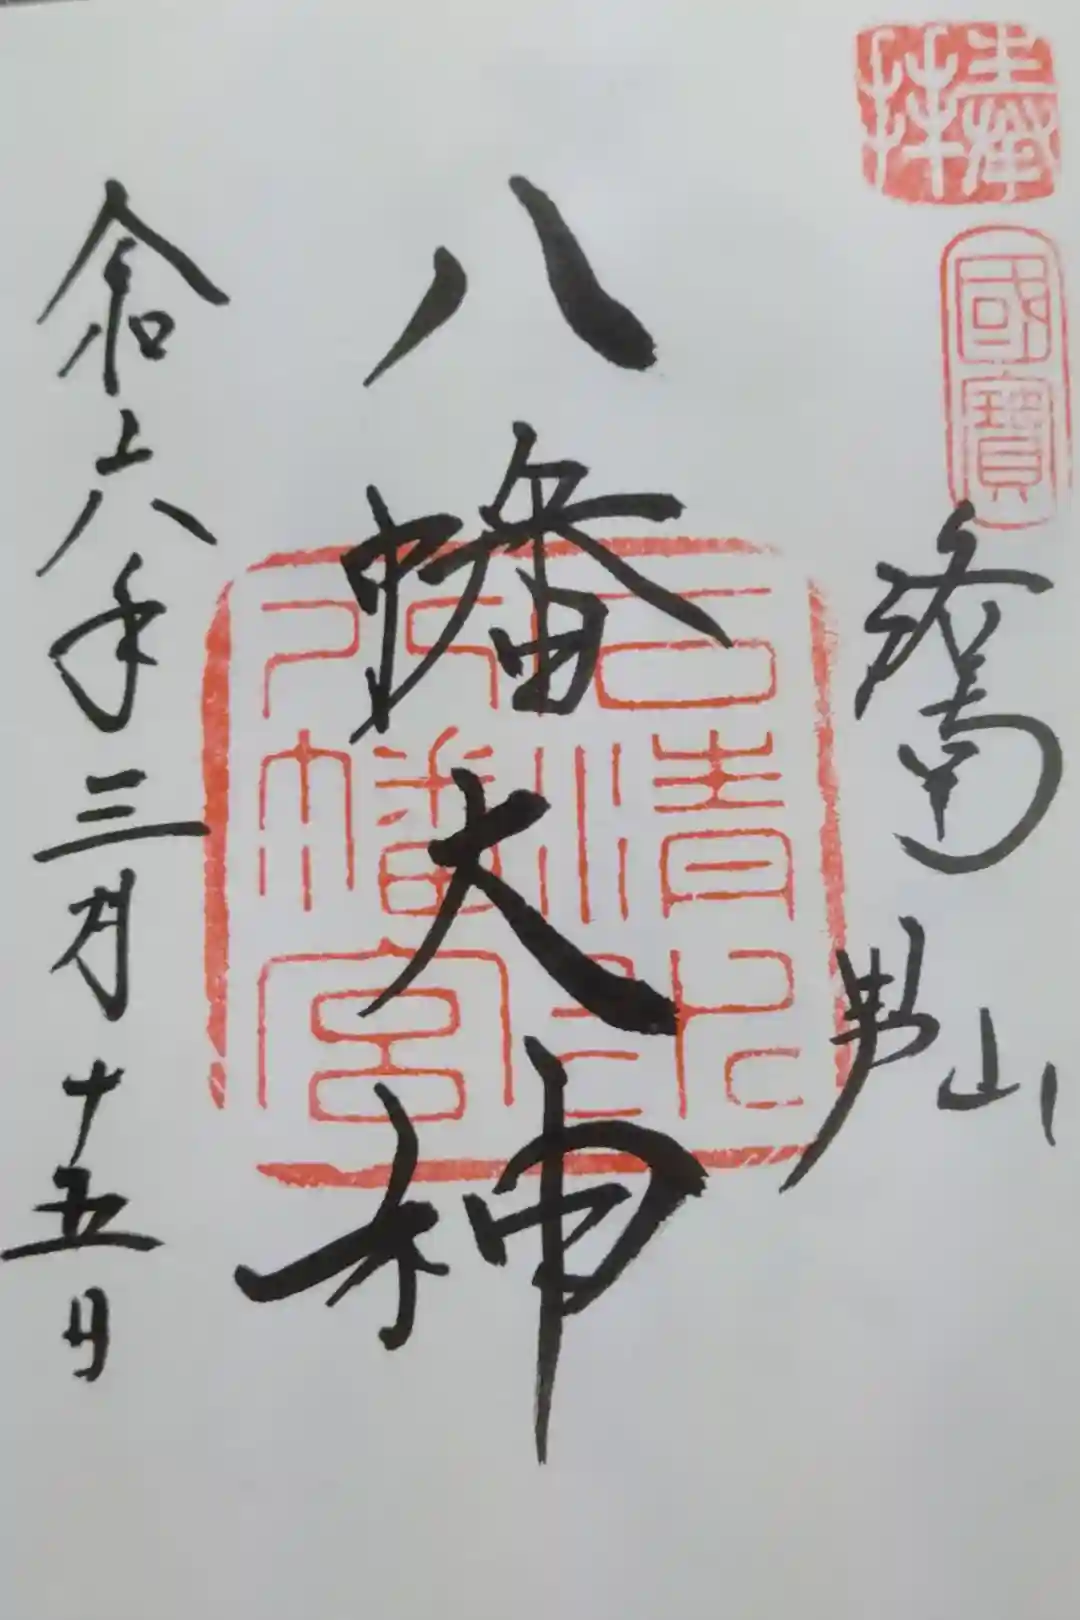 奉拝
國寳
洛南
男山
八幡大神
石清水八幡宮
令和六年三月十五日